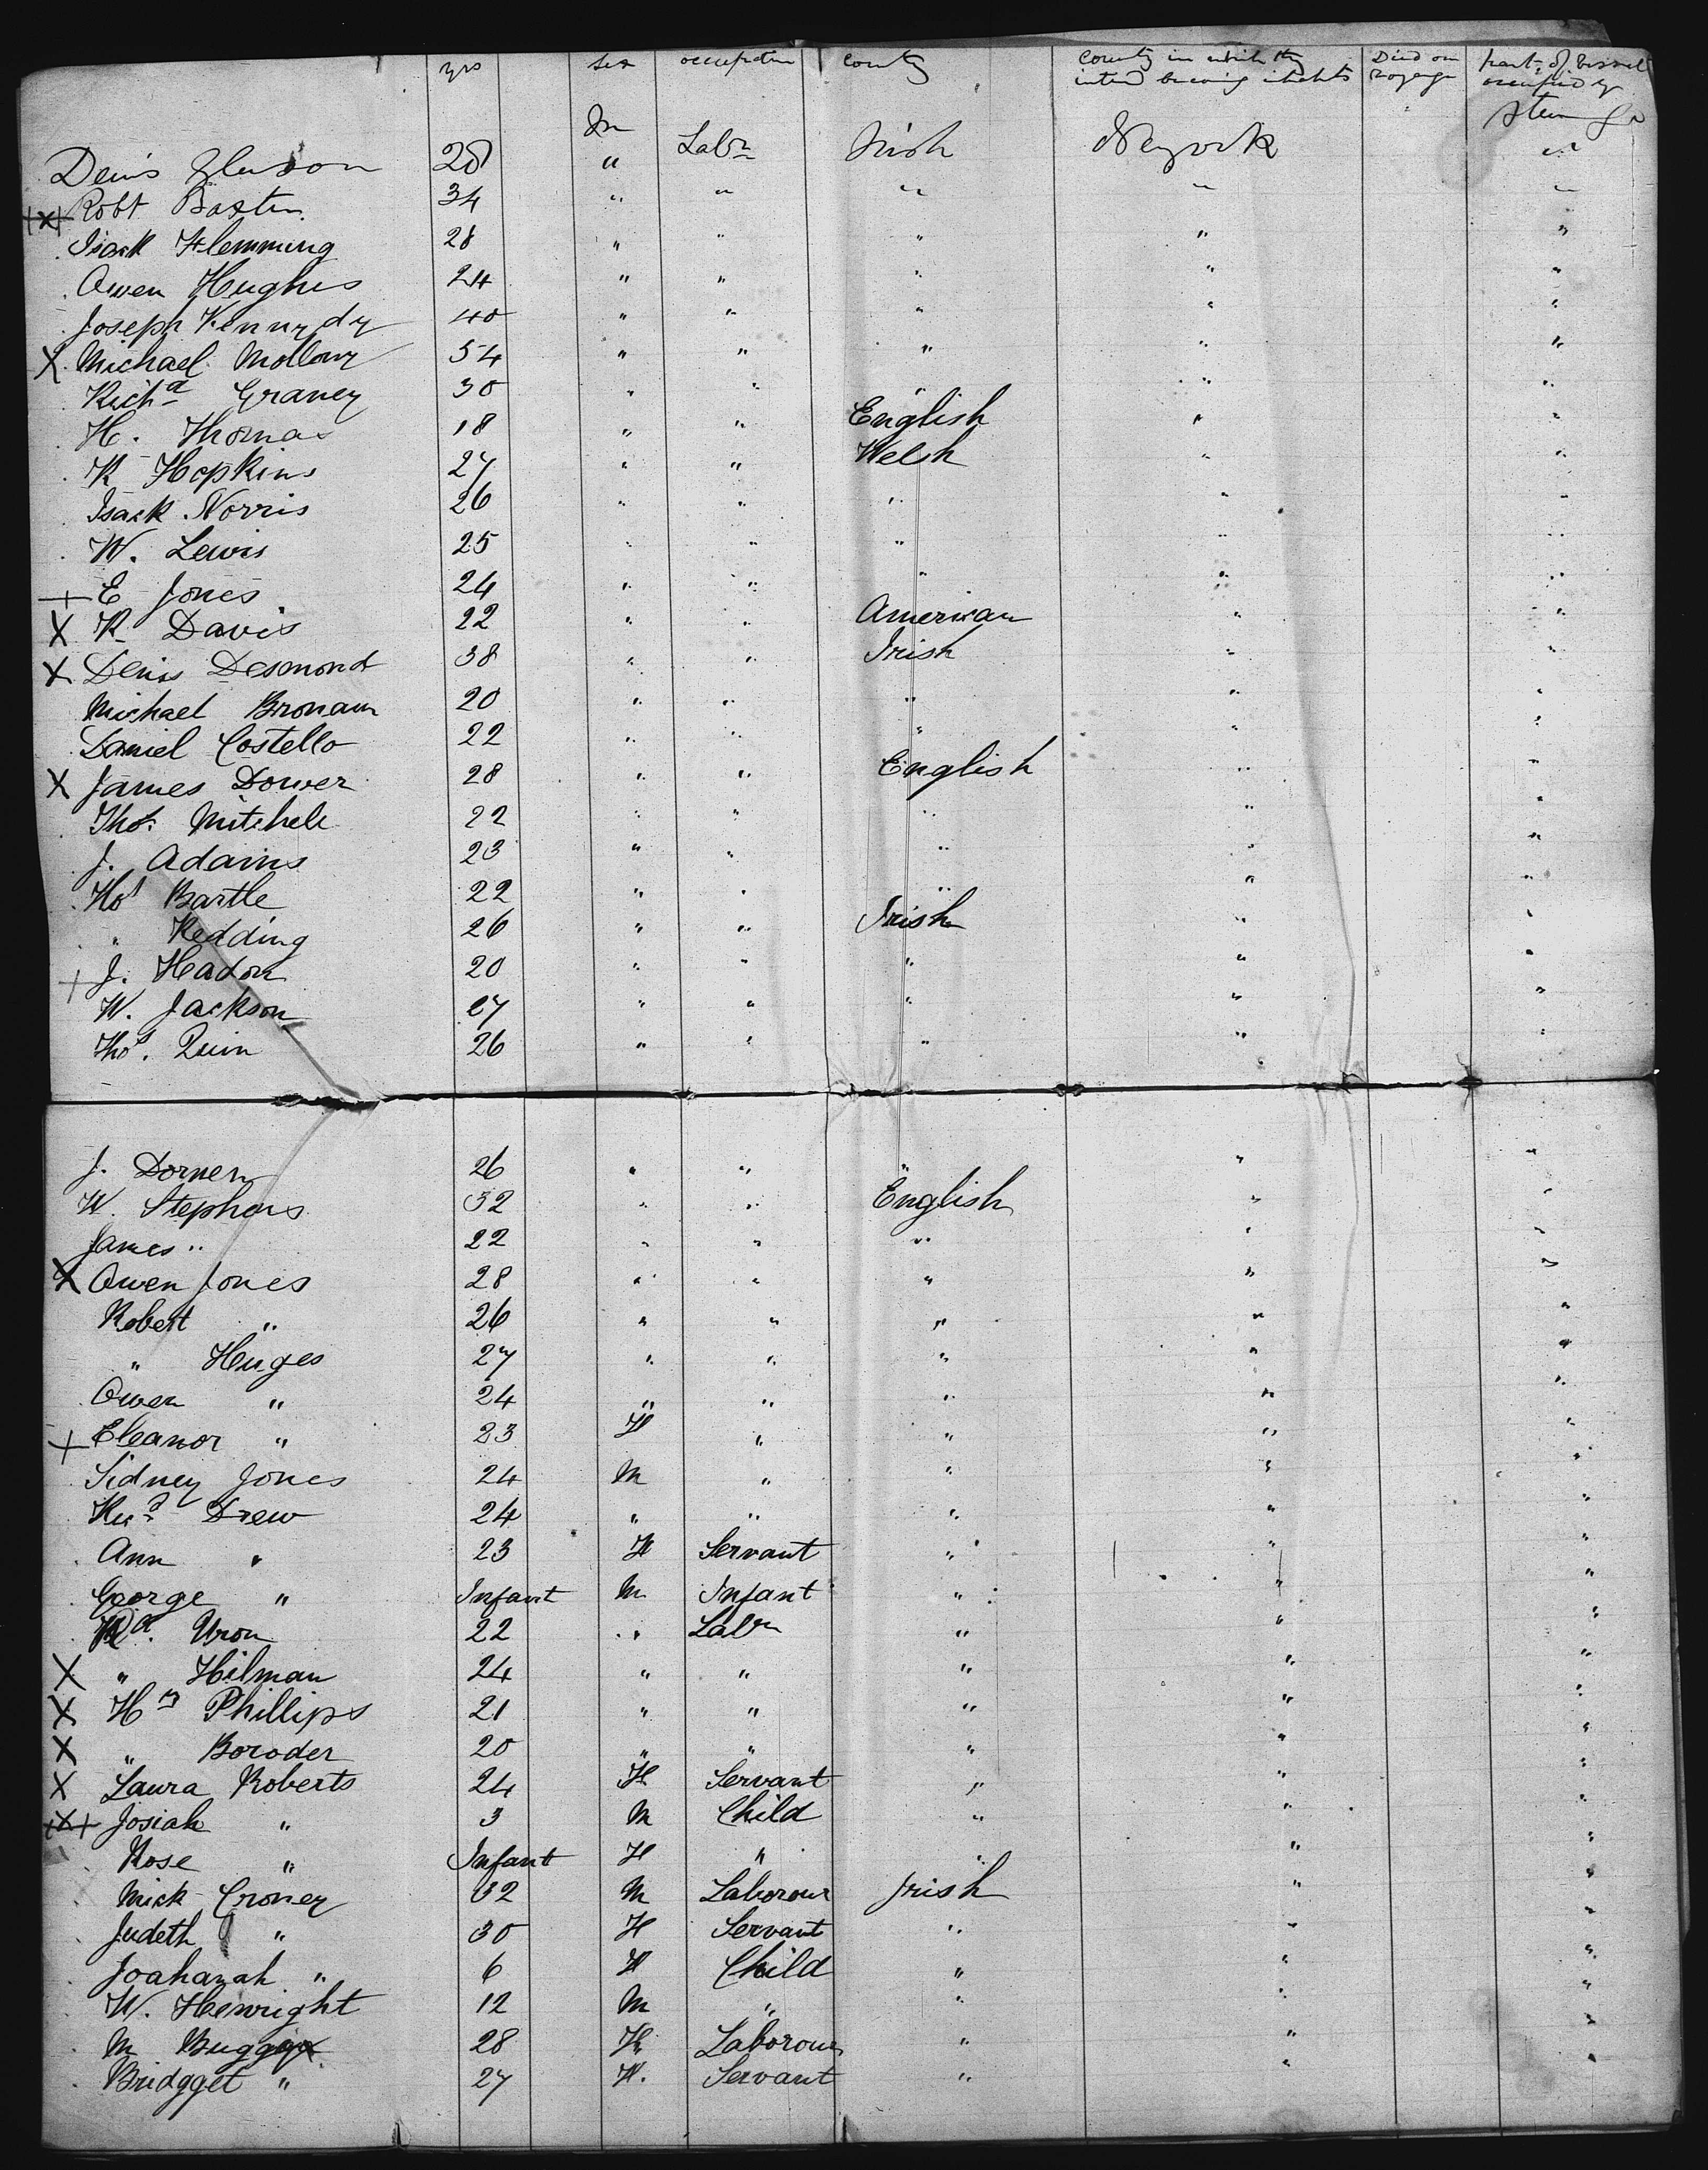 yrs sex occupation country country in which they intend becoming inhabitants Died on voyage part of vessel occupied by
m Steerage
Denis Gleeson 28 " Labr Irish Neyork "
Robt Baxter 34 " " " " "
Isack Flemming 28 " " " " "
Owen Hughes 24 " " " " "
Joseph Kennedy 40 " " " " "
X Michael Mollowy 54 " " " " "
Richd Graney 30 " " " " "
H. Thomas 18 " " English " "
R Hopkins 27 " " Welsh " "
Isack Norris 26 " " " " "
W. Lewis 25 " " " " "
+ E Jones 24 " " " " "
X R Davis 22 " " American " "
X Denis Desmond 38 " " Irish " "
Michael Bronam 20 " " " " "
Daniel Costello 22 " " " " "
X James Dower 28 " " English " "
Thos Mitchele 22 " " " " "
J. Adams 23 " " " " "
Thos Bartle 22 " " " " "
" Redding 26 " " Irish " "
+ J. Headon 20 " " " " "
W. Jackson 27 " " " " "
Thos. Quin 26 " " " " "
J. Dorner 26 " " " " "
W. Stephens 32 " " English " "
James " 22 " " " " "
X Owen Jones 28 " " " " "
Robert " 26 " " " " "
" Huges 27 " " " " "
Owen " 24 " " " " "
+ Eleanor " 23 F " " " "
Sidney Jones 24 M " " " "
Ricd Drew 24 " " " " "
Ann " 23 F Servant " " "
George " Infant M Infant " " "
Rd. Uron 22 " Labr " " "
X " Hilman 24 " " " " "
X Hy Phillips 21 " " " " "
X " Boroder 20 " " " " "
X Laura Roberts 24 F Servant " " "
+X+ Josiah " 3 M Child " " "
Rose " Infant F " " " "
Mick Croney 32 M Laborour Irish " "
Judeth " 30 F Servant " " "
Joahanah " 6 F Child " " "
W. Hewright 12 M " " " "
M Buggy 28 F Laborour " " "
Bridgget " 27 F. Servant " " "